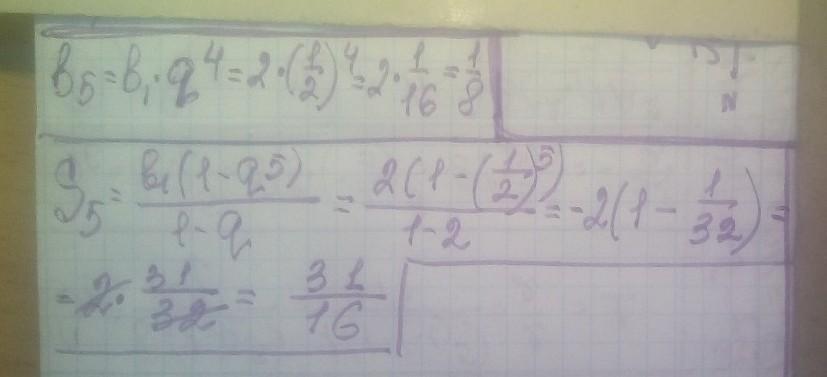 b₅ = b₁ · q⁴ = 2 · (1/2)⁴ = 2 · 1/16 = 1/8
S₅ = b₁(1 - q⁵)/(1 - q) = 2(1 - (1/2)⁵)/(1 - 2) = -2(1 - 1/32) =
= 2 · 31/32 = 31/16